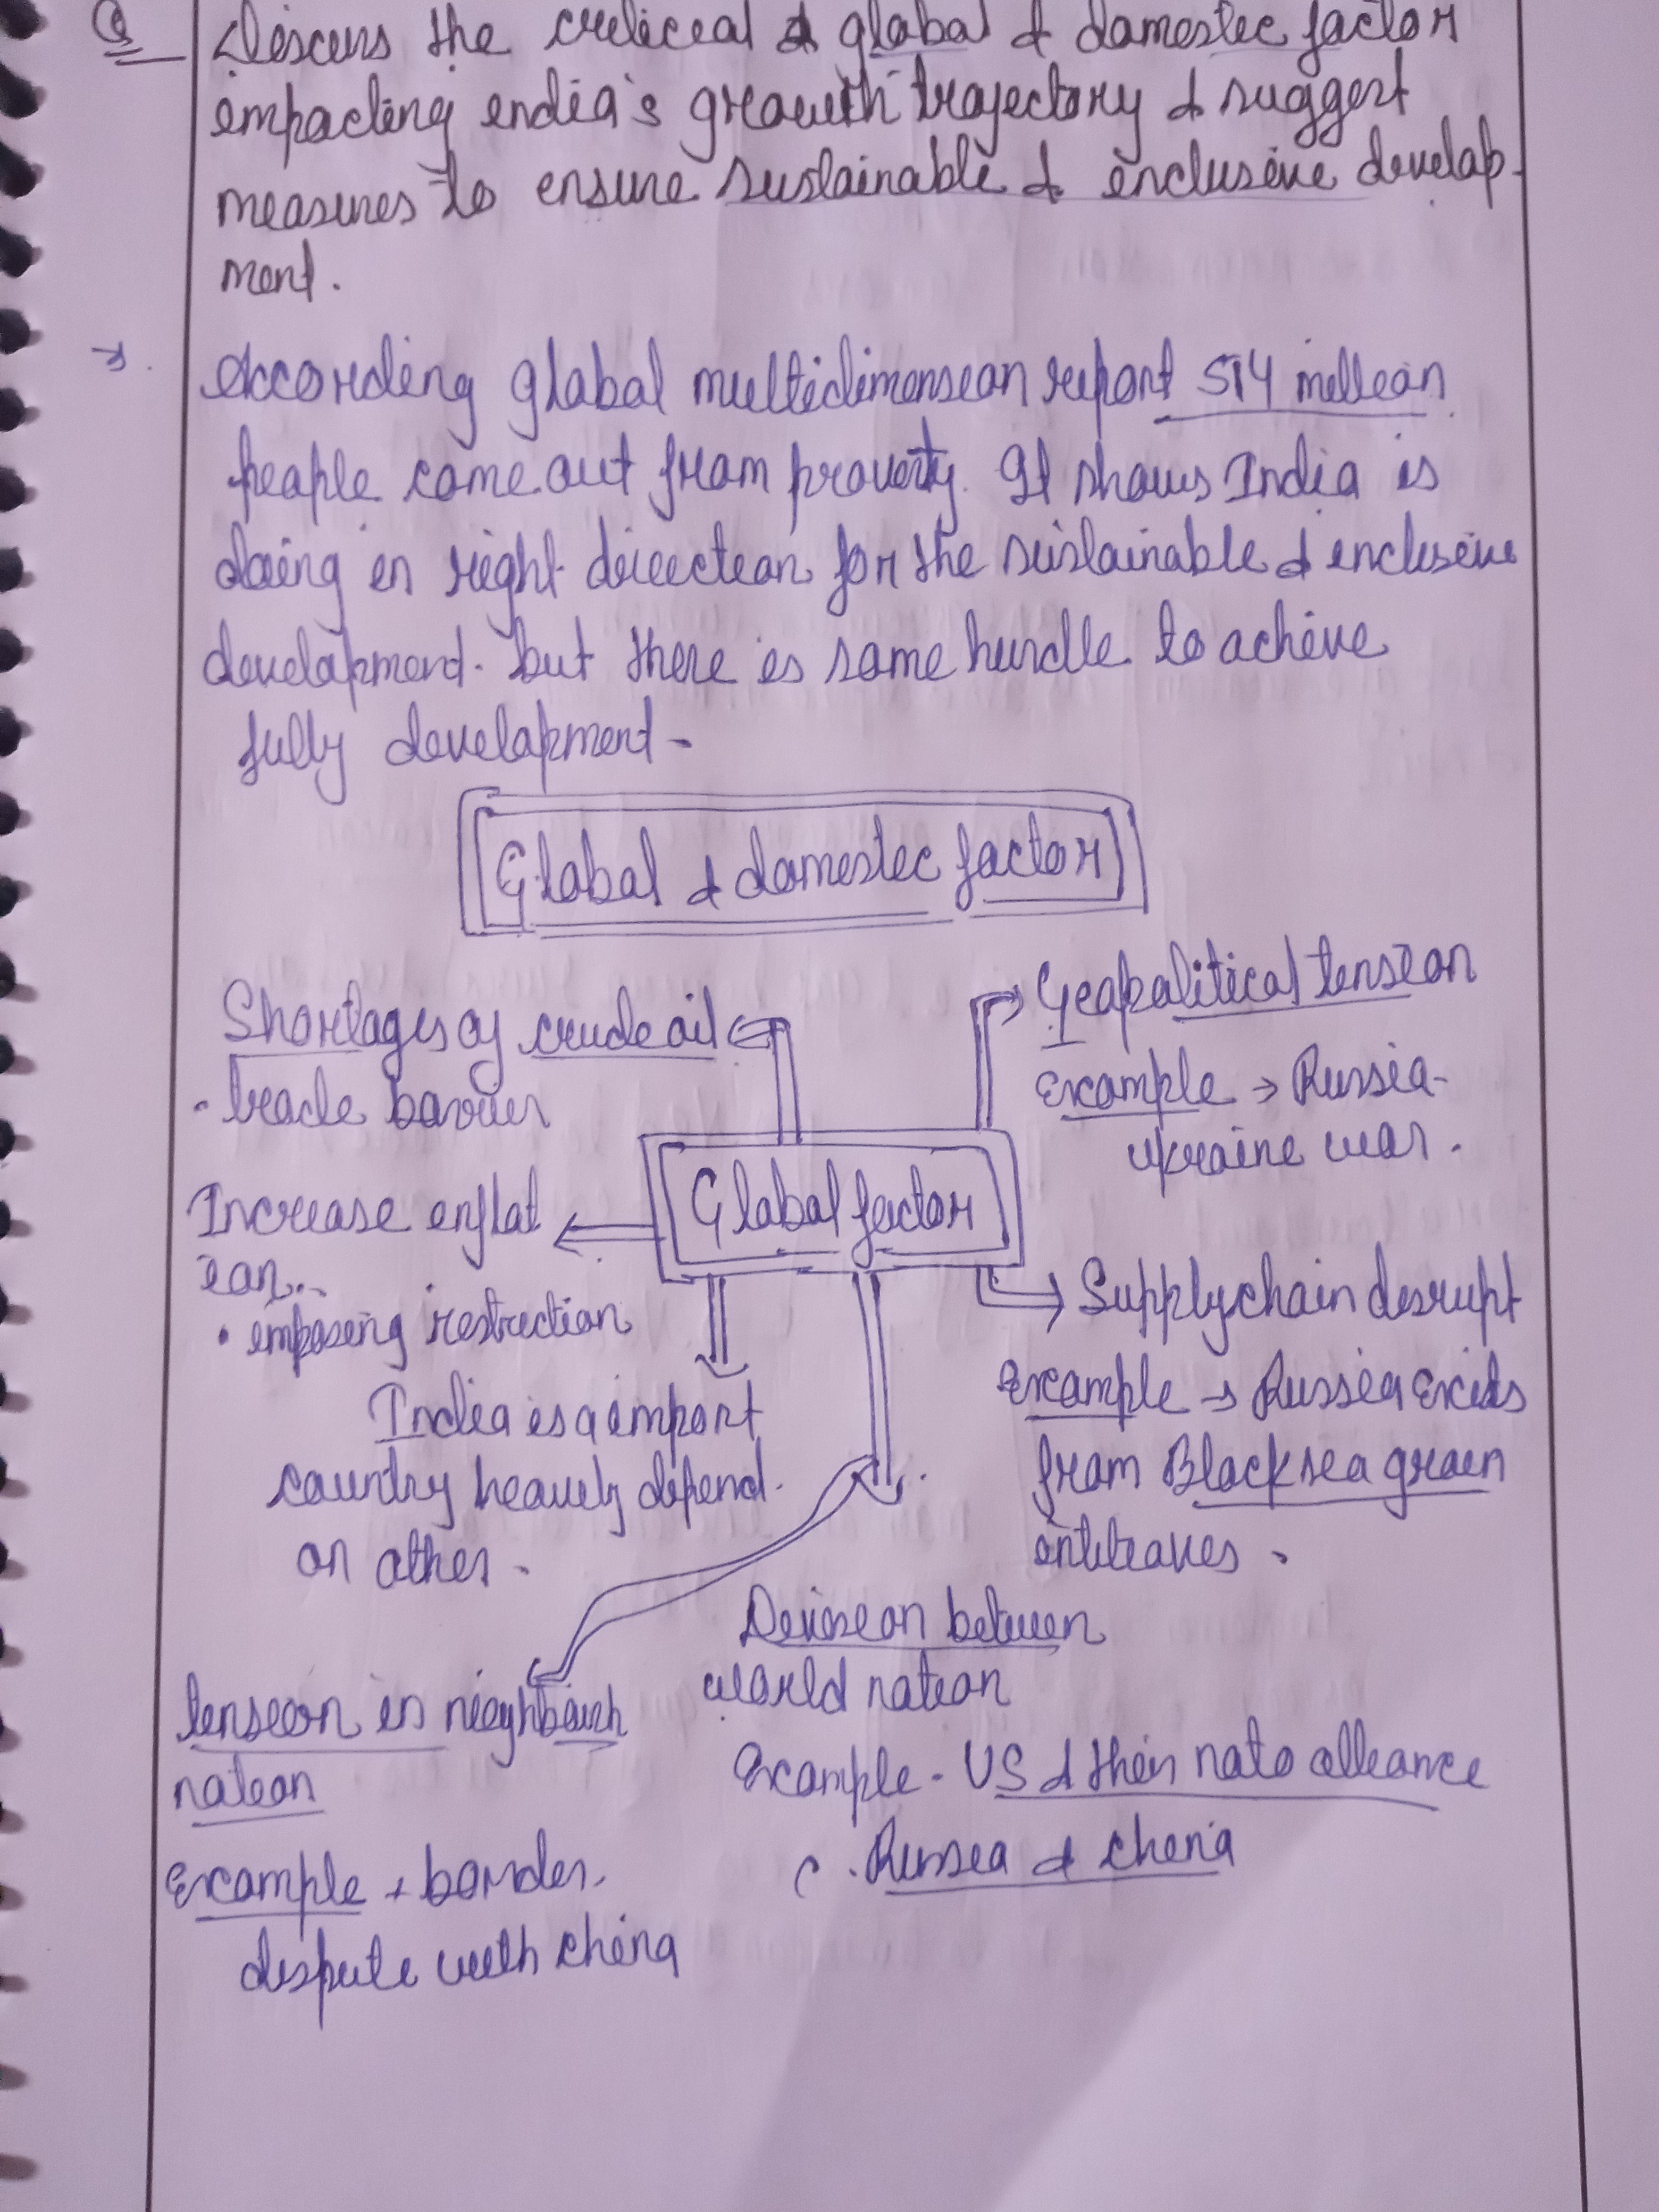 Q Discuss the critical & global & domestic factor
impacting india's growth trajectory & suggest
measures to ensure sustainable & inclusive develop-
ment.
According global multidimension report 514 million
people come out from proverty. It shows India is
doing in right direction for the sustainable & inclusive
development. but there is some hurdle to achive
fully development -
Global & domestic factor
Shortages of crude oil
- trade barrier
Geopolitical tension
Example → Russia-
ukraine war.
Global factor
Increase inflat
ion..
• imposing restriction
Supplychain disrupt
Example → Russia exits
from Black sea grain
India is a import
country heavily depend
on other.
Division between
world nation
Example - US & their nato alliance
Russia & china
tension in nieghbourh
nation
Example → border
dispute with china